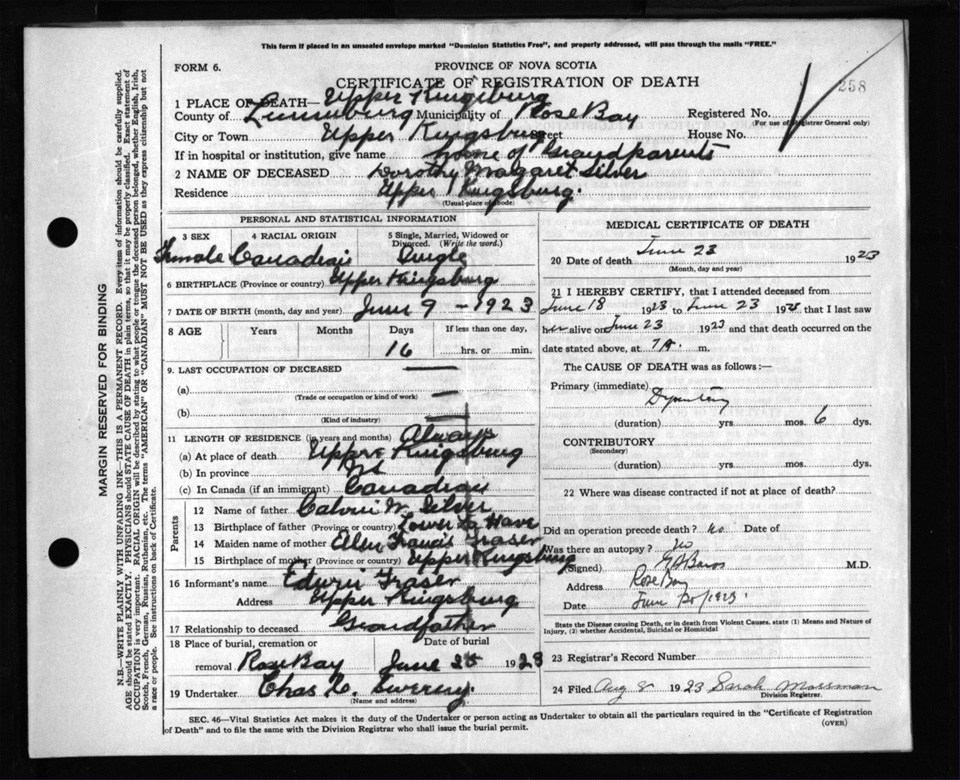 This form if placed in an unsealed envelope marked "Dominion Statistics Free", and properly addressed, will pass through the mails "FREE."
FORM 6.
PROVINCE OF NOVA SCOTIA
CERTIFICATE OF REGISTRATION OF DEATH
258
1 PLACE OF DEATH— Upper Kingsburg
County of Lunenburg Municipality of Rose Bay Registered No.
(For use of Registrar General only)
City or Town Upper Kingsburg Street House No.
If in hospital or institution, give name home of Grandparents
2 NAME OF DECEASED Dorothy Margaret Silver
Residence Upper Kingsburg.
(Usual place of abode)
PERSONAL AND STATISTICAL INFORMATION
3 SEX 4 RACIAL ORIGIN 5 Single, Married, Widowed or Divorced. (Write the word.)
Female Canadian Single
6 BIRTHPLACE (Province or country) Upper Kingsburg
7 DATE OF BIRTH (month, day and year) June 9 - 1923
8 AGE Years Months Days If less than one day,
16 hrs. or min.
9. LAST OCCUPATION OF DECEASED —
(a) —
(Trade or occupation or kind of work)
(b) —
(Kind of industry)
11 LENGTH OF RESIDENCE (in years and months) Always
(a) At place of death Upper Kingsburg
(b) In province
(c) In Canada (if an immigrant) Canadian
Parents
12 Name of father Calvin W. Silver
13 Birthplace of father (Province or country) Lower La Have
14 Maiden name of mother Ellen Francis Fraser
15 Birthplace of mother (Province or country) Upper Kingsburg
16 Informant's name Edwin Fraser
Address Upper Kingsburg
17 Relationship to deceased Grandfather
18 Place of burial, cremation or removal Date of burial
Rose Bay June 25 1923
19 Undertaker Chas
(Name and address)
MEDICAL CERTIFICATE OF DEATH
20 Date of death June 23 1923
(Month, day and year)
21 I HEREBY CERTIFY, that I attended deceased from
June 18 1923 to June 23 1923 that I last saw
her alive on June 23 1923 and that death occurred on the
date stated above, at 7 A. m.
The CAUSE OF DEATH was as follows:—
Primary (immediate)
Dysentery
(duration) yrs. mos. 6 dys.
CONTRIBUTORY
(Secondary)
(duration) yrs. mos. dys.
22 Where was disease contracted if not at place of death?
Did an operation precede death? No Date of
Was there an autopsy? No
(Signed) M.D.
Address Rose Bay
Date June 1923.
State the Disease causing Death, or in death from Violent Causes, state (1) Means and Nature of
Injury, (2) whether Accidental, Suicidal or Homicidal
23 Registrar's Record Number
24 Filed Aug 8 1923 Sarah Mossman
Division Registrar.
SEC. 46—Vital Statistics Act makes it the duty of the Undertaker or person acting as Undertaker to obtain all the particulars required in the "Certificate of Registration
of Death" and to file the same with the Division Registrar who shall issue the burial permit.
(OVER)
MARGIN RESERVED FOR BINDING
N.B.—WRITE PLAINLY WITH UNFADING INK—THIS IS A PERMANENT RECORD. Every item of information should be carefully supplied.
AGE should be stated EXACTLY. PHYSICIANS should STATE CAUSE OF DEATH in plain terms, so that it may be properly classified. Exact statement of
OCCUPATION is very important. RACIAL ORIGIN will be described by stating to what people or tongue the deceased person belonged, whether English, Irish,
Scotch, French, German, Russian, Ruthenian, etc. The terms "AMERICAN" OR "CANADIAN" MUST NOT BE USED as they express citizenship but not
a race or people. See instructions on back of Certificate.